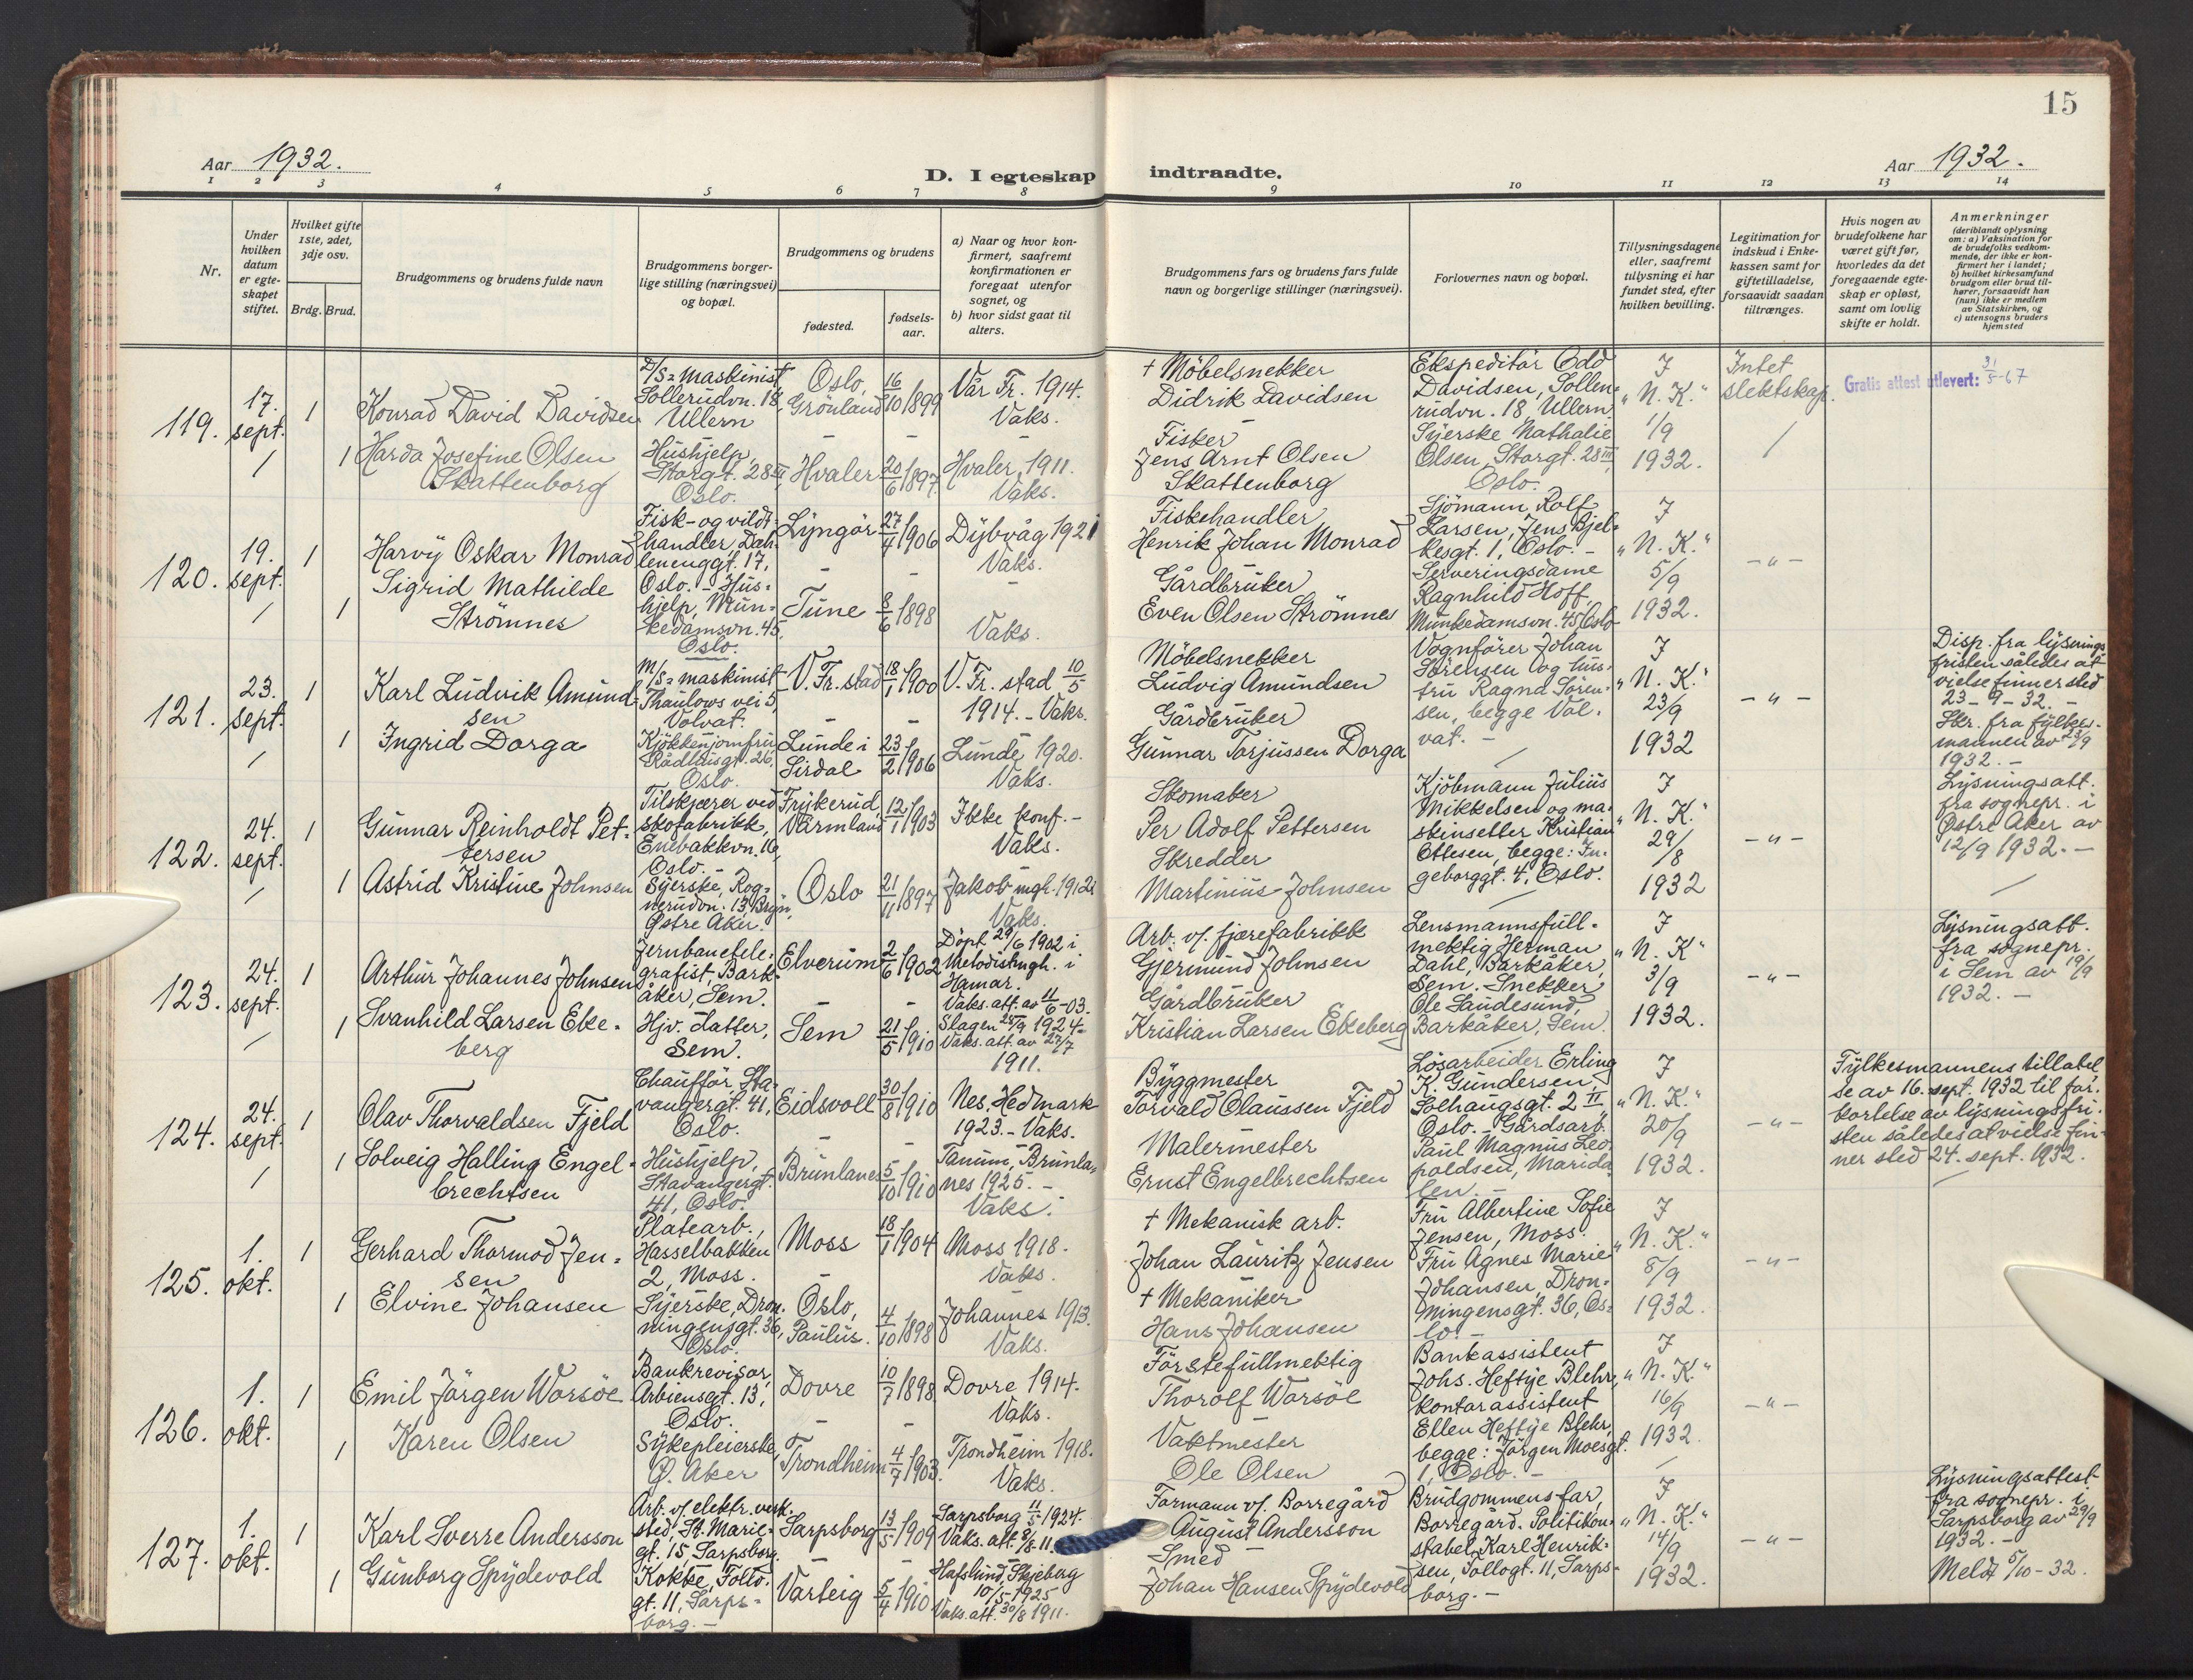 15
Aar 1932.
D. I egteskap indtraadte.
Aar 1932.
1 2 3 4 5 6 7 8 9 10 11 12 13 14
Nr.
Under hvilken datum er egte-skapet stiftet.
Hvilket gifte 1ste, 2det, 3dje osv.
Brdg. Brud.
Brudgommens og brudens fulde navn
Brudgommens borger-lige stilling (næringsvei) og bopæl.
Brudgommens og brudens
fødested.
fødsels-aar.
a) Naar og hvor kon-firmert, saafremt konfirmationen er foregaat utenfor sognet, og
b) hvor sidst gaat til alters.
Brudgommens fars og brudens fars fulde navn og borgerlige stillinger (næringsvei).
Forlovernes navn og bopæl.
Tillysningsdagene eller, saafremt tillysning ei har fundet sted, efter hvilken bevilling.
Legitimation for indskud i Enke-kassen samt for giftetilladelse, forsaavidt saadan tiltrænges.
Hvis nogen av brudefolkene har været gift før, hvorledes da det foregaaende egte-skap er opløst, samt om lovlig skifte er holdt.
Anmerkninger
(deriblandt oplysning om: a) Vaksination for de brudefolks vedkom-mende, der ikke er kon-firmert her i landet;
b) hvilket kirkesamfund brudgom eller brud til-hører, forsaavidt han (hun) ikke er medlem av Statskirken, og
c) utensogns bruders hjemsted
119.
17. sept.
1
Konrad David Davidsen
D/S=maskinist Sollerudvn. 18, Ullern
Oslo, Grönland
16/10 1899
Vår Fr. 1914. Vaks.
† Möbelsnekker
Didrik Davidsen
Ekspeditör Odd Davidsen, Sollen= rudvn. 18, Ullern
Syerske Nathalie Olsen, Storgt. 28 III, Oslo.
I "N. K." 1/9 1932.
Intet slektskap.
Gratis attest utlevert: 31/5-67
1
Harda Josefine Olsen Skattenborg
Hushjelp, Storgt. 28 III, Oslo.
Hvaler
20/6 1897.
Hvaler 1911. Vaks.
Fisker
Jens Arnt Olsen Skattenborg
120.
19. sept.
1
Harvy Oskar Monrad
Fisk- og vildt= handler, Dæh= lenenggt. 17, Oslo. -
Lyngör
27/4 1906
Dybvåg 1921 Vaks.
Fiskehandler
Henrik Johan Monrad
Sjömann Rolf Larsen, Jens Bjel= kesgt. 1, Oslo. -
Serveringsdame Ragnhild Hoff, Munkedamsvn. 45, Oslo
I "N. K." 5/9 1932.
- " -
1
Sigrid Mathilde Strömnes
Hus= hjelp, Mun= kedamsvn. 45, Oslo.
Tune
8/6 1898
Vaks.
Gårdbruker
Even Olsen Strömnes
121.
23. sept.
1
Karl Ludvik Amund= sen
M/S=maskinist Thaulows vei 5, Volvat.
V. Fr. stad
18/1 1900
V. Fr. stad 10/5 1914. - Vaks.
Möbelsnekker
Ludvig Amundsen
Vognförer Johan Sörensen og hus= fru Ragna Sören= sen, begge Vol= vat. -
I "N. K." 23/9 1932
- " -
Disp. fra lysnings fristen således at vielse finner sted 23-9-32. - Skr. fra fylkes= mannen av 23/9 1932. -
1
Ingrid Dorga
Kjökkenjomfru Rådhusgt. 26, Oslo.
Lunde i Sirdal
23/2 1906
Lunde 1920. Vaks.
Gårdbruker
Gunnar Torjussen Dorga
122.
24. sept.
1
Gunnar Reinholdt Pet= tersen
Tilskjærer ved skofabrikk, Enebakkvn. 16, Oslo. -
Frykerud, Värmland
12/1 1903
Ikke konf. - Vaks.
Skomaker
Per Adolf Pettersen
Kjöbmann Julius Mikkelsen og ma= skinsetter Kristian Ottesen, begge: In= geborggt. 4, Oslo.
I "N. K." 29/8 1932
- " -
Lysningsatt. fra sognepr. i Østre Aker av 12/9 1932. -
1
Astrid Kristine Johnsen
Syerske, Rog= nerudvn. 13, Bryn, Østre Aker.
Oslo
21/11 1897
Jakob mgh. 1912 Vaks.
Skredder
Martinius Johnsen
123.
24. sept.
1
Arthur Johannes Johnsen
Jernbanetele= grafist, Bark= åker, Sem.
Elverum
2/6 1902
Döpt 29/6 1902 i Metodistmgh. i Hamar. Vaks. att. av 11/6-03.
Arb. v/ fjærefabrikk
Gjermund Johnsen
Lensmannsfull= mektig Herman Dahl, Barkåker, Sem. Snekker Ole Saudesund, Barkåker, Sem.
I "N. K" 3/9 1932.
- " -
Lysningsatt. fra sognepr. i Sem av 19/9 1932. -
1
Svanhild Larsen Eke= berg
Hjv. datter, Sem.
Sem
21/5 1910
Slagen 28/9 1924. Vaks. att. av 27/7 1911.
Gårdbruker
Kristian Larsen Ekeberg
124.
24. sept.
1
Olav Thorvaldsen Fjeld
Chaufför, Sta= vangergt. 41, Oslo.
Eidsvoll
30/8 1910
Nes, Hedmark 1923. - Vaks.
Byggmester
Torvald Olaussen Fjeld
Lösarbeider Erling K. Gundersen, Solhaugsgt. 2 II, Oslo. - Gårdsarb. Paul Magnus Leo= poldsen, Marida= len. -
I "N. K." 20/9 1932.
- " -
Fylkesmannens tillatel se av 16. sept. 1932 til for= kortelse av lysningsfri= sten således at vielse fin= ner sted 24. sept. 1932.
1
Solveig Halling Engel= brechtsen
Hushjelp, Stavangergt. 41, Oslo.
Brunlanes
5/10 1910
Tanum, Brunla= nes 1925. - Vaks.
Malermester
Ernst Engelbrechtsen
125.
1. okt.
1
Gerhard Thormod Jen= sen
Platearb., Hasselbakken 2, Moss.
Moss
18/1 1904
Moss 1918. Vaks.
† Mekanisk arb.
Johan Lauritz Jensen
Fru Albertine Sofie Jensen, Moss.
Fru Agnes Marie Johansen, Dron= ningensgt. 36, Os= lo. -
I "N. K." 8/9 1932.
- " -
1
Elvine Johansen
Syerske, Dron= ningensgt. 36, Oslo.
Oslo, Paulus.
4/10 1898
Johannes 1913. Vaks.
† Mekaniker
Hans Johansen
126.
1. okt.
1
Emil Jörgen Worsöe
Bankrevisor, Arbiensgt. 13, Oslo.
Dovre
10/7 1898
Dovre 1914. Vaks.
Förstefullmektig
Thorolf Worsöe
Bankassistent Johs. Heftye Blehr, kontorassistent Ellen Heftye Blehr, begge: Jörgen Moesgt. 1, Oslo. -
I "N. K." 16/9 1932.
- " -
1
Karen Olsen
Sykepleierske, Ø. Aker
Trondheim
4/7 1903.
Trondheim 1918. Vaks.
Vaktmester
Ole Olsen
127.
1. okt.
1
Karl Sverre Andersson
Arb. v/ elektr. verk= sted, St. Marie= gt. 15, Sarpsborg.
Sarpsborg
13/5 1909
Sarpsborg 11/5 1924. Vaks. att. 8/8-11.
Formann v/ Borregård
August Andersson
Brudgommens far, Borregård. Politikon= stabel Karl Henrik= sen, Tollogt. 11, Sarps= borg. -
I "N. K." 14/9 1932.
- " -
Lysningsattest fra sognepr. i Sarpsborg av 29/9 1932. -
Meldt 5/10-32.
1
Gunborg Spydevold
Kokke, gt. 11, Sarps= borg. -
Varteig
5/4 1910
Hafslund, Skjeberg 10/5 1925 Vaks. att. 30/8 1911.
Smed
Johan Hansen Spydevold